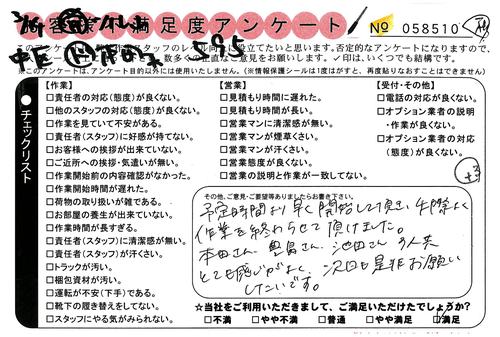 お客様不満足度アンケート
No 058510
※このアンケートは、アンケート目的以外には使用いたしません。(情報保護シールは1度はがすと、再度貼りなおすことはできません)
チェックリスト
【作業】
□責任者の対応(態度)が良くない。
□他のスタッフの対応(態度)が良くない。
□作業を見ていて不安がある。
□責任者(スタッフ)に好感が持てない。
□お客様への挨拶が出来ていない。
□ご近所への挨拶・気遣いが無い。
□作業開始前の内容確認がなかった。
□作業開始時間が遅れた。
□荷物の取り扱いが雑である。
□お部屋の養生が出来ていない。
□作業時間が長すぎる。
□責任者(スタッフ)に清潔感が無い。
□責任者(スタッフ)が汗くさい。
□トラックが汚い。
□梱包資材が汚い。
□運転が不安(下手)である。
□靴下の履き替えをしてない。
□スタッフにやる気がみられない。
【営業】
□見積もり時間に遅れた。
□見積もり時間が長い。
□営業マンに清潔感が無い。
□営業マンが煙草くさい。
□営業マンが汗くさい。
□営業態度が良くない。
□営業の説明と作業が一致してない。
【受付・その他】
□電話の対応が良くない。
□オプション業者の説明
・作業が良くない。
□オプション業者の対応
(態度)が良くない。
その他、ご意見・ご要望等ありましたらお書き下さい。
予定時間より早く開始して頂き、手際よく
作業を終わらせて頂けました。
本田さん、豊島さん、池田さん 3人共
とても感じがよく、次回も是非お願い
したいです。
☆当社をご利用いただきまして、ご満足いただけたでしょうか?
□不満 □やや不満 □普通 □やや満足 □満足